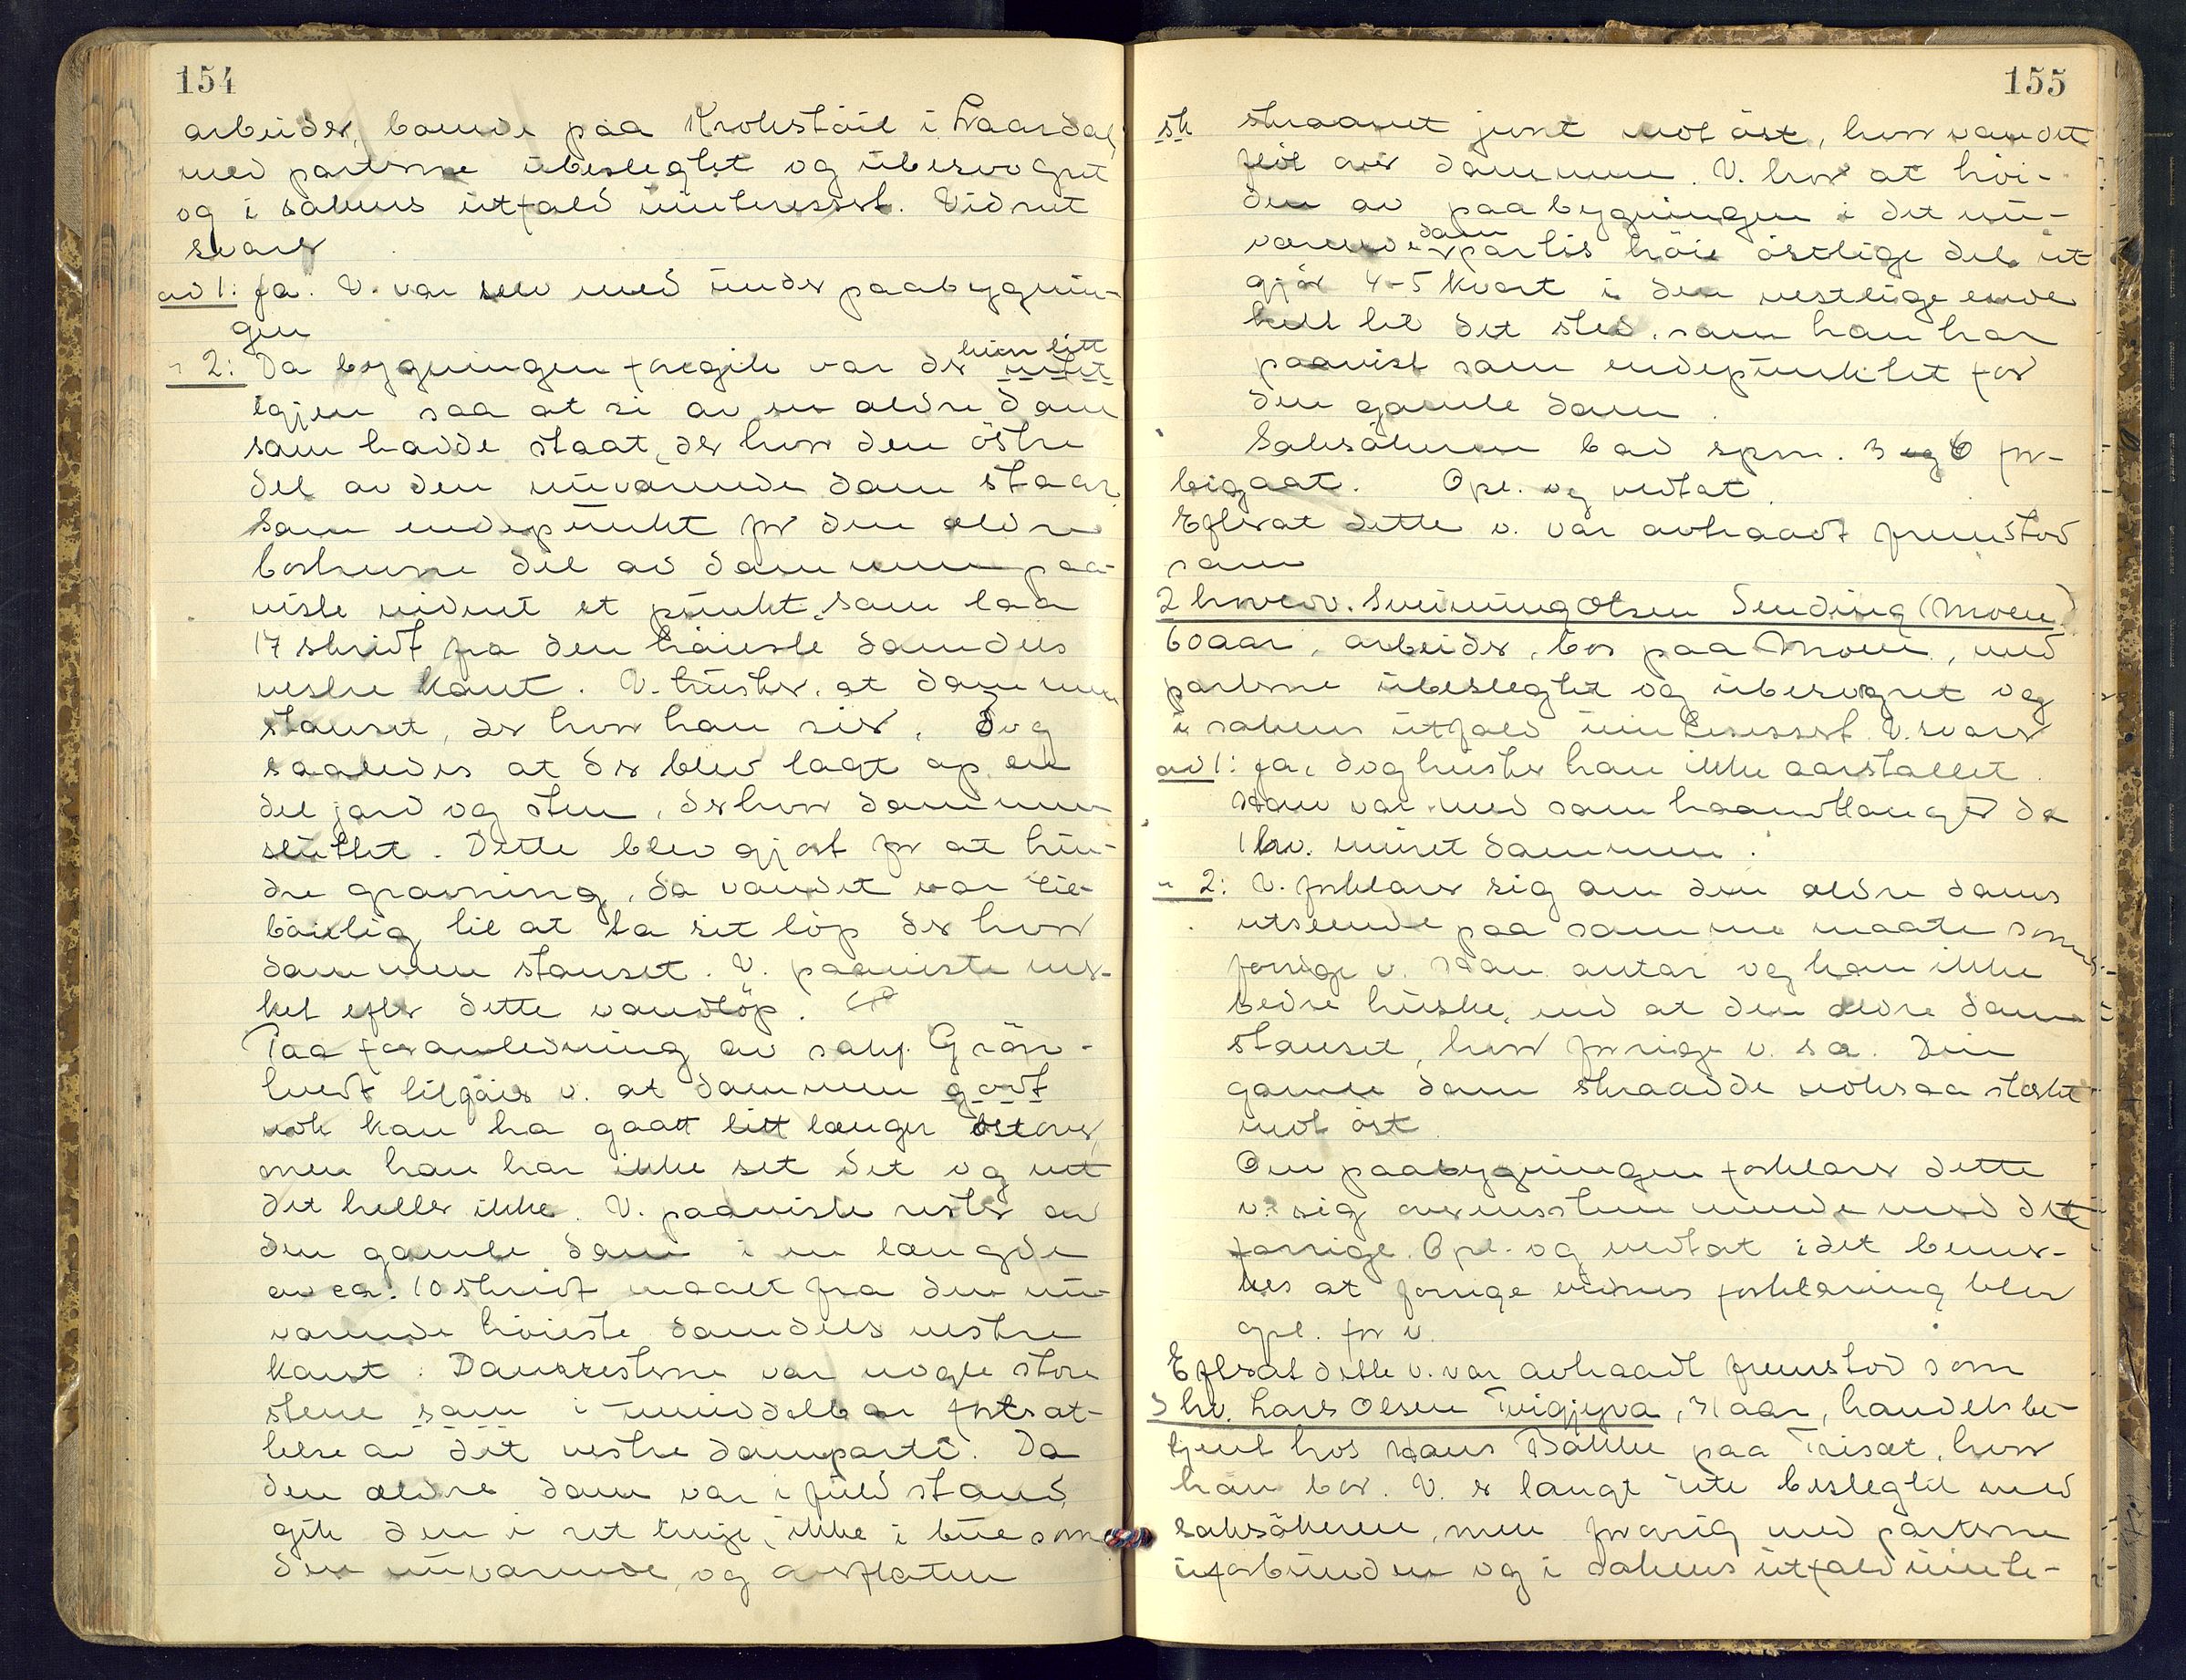 154
arbeider, boende paa Krokstöil i Laardal,
med parterne ubeslegtet og ubesvogret
og i sakens utfald uinteressert. Vidnet
svarer
ad 1: Ja. V. var selv med under paabygnin-
gen
" 2: Da bygningen foregik var der kun litt intet
igjen saa at si av en ældre dam
som hadde staat, der hvor den östre
del av den nuværende dam staar.
Som endepunkt for den ældre
borterste del av dammen paa-
viste vidnet et punkt, som laa
17 skridt fra den höieste damdels
vestre kant. V. husker, at dammen
stanset, der hvor han sier, dog
saaledes at der blev lagt op en
del jord og sten, der hvor dammen
sluttet. Dette blev gjort for at hin-
dre gravning, da vandet var til-
böielig til at ta sit löp der hvor
dammen stanset. V. paaviste mer-
ket efter dette vandlöp.
Paa foranledning av sakf. Grön-
hvedt tilföier v. at dammen godt
nok kan ha gaatt litt længer östover,
men han har ikke set det og vet
det heller ikke. V. paaviste rester av
den gamle dam i en længde
av ca. 10 skridt maalt fra den nu-
værende höieste damdels vestre
kant. Damresterne var nogle store
stene som i umiddelbar fortsæt-
telse av det vestre damparti. Da
den ældre dam var i fuld stand,
gik den i ret linje, ikke i bue som
den nuværende, og overflaten
155
sk skraanet jevnt mot öst, hvor vandet
flöt over dammen. V. tror at höi-
den av paabygningen i det nu-
værende dampartis höie östlige del ut
gjör 4-5 kvart i den vestlige ende
helt til det sted, som han har
paavist som endepunktet for
den gamle dam.
Saksökeren bad spm. 3 og 6 for-
bigaat. Opl. og vedtat.
Efterat dette v. var avhaadt fremstod
som
2 hovedv. Sveinung Olsen Sending (Moen)
60 aar, arbeider, bor paa Moen, med
parterne ubeslegtet og ubesvogret og
i sakens utfald uinteressert. V. svarer
ad 1: Ja, dog husker han ikke aarstallet.
Han var med som haandtlanger da
1 hv. muret dammen.
" 2: V. forklarer sig om den ældre dams
utseende paa samme maate som
forrige v. Han antar og kan ikke
bedre huske, end at den ældre dam
stanset, hvor forrige v. sa. Den
gamle dam skraadde noksaa sterkt
mot öst.
Om paabygningen forklarer dette
v. sig overensstemmende med det
forrige. Opl. og vedtat idet bemer-
kes at forrige vidnes forklaring blev
opl. for v.
Efterat dette v. var avhaadt fremstod som
3 hv. Lars Olsen Tvigjyva, 31 aar, handelsbe-
tjent hos Hans Bakke paa Triset, hvor
han bor. V. er langt ute beslegtet med
saksökeren, men forövrig med parterne
uforbunden og i sakens utfald uinte-